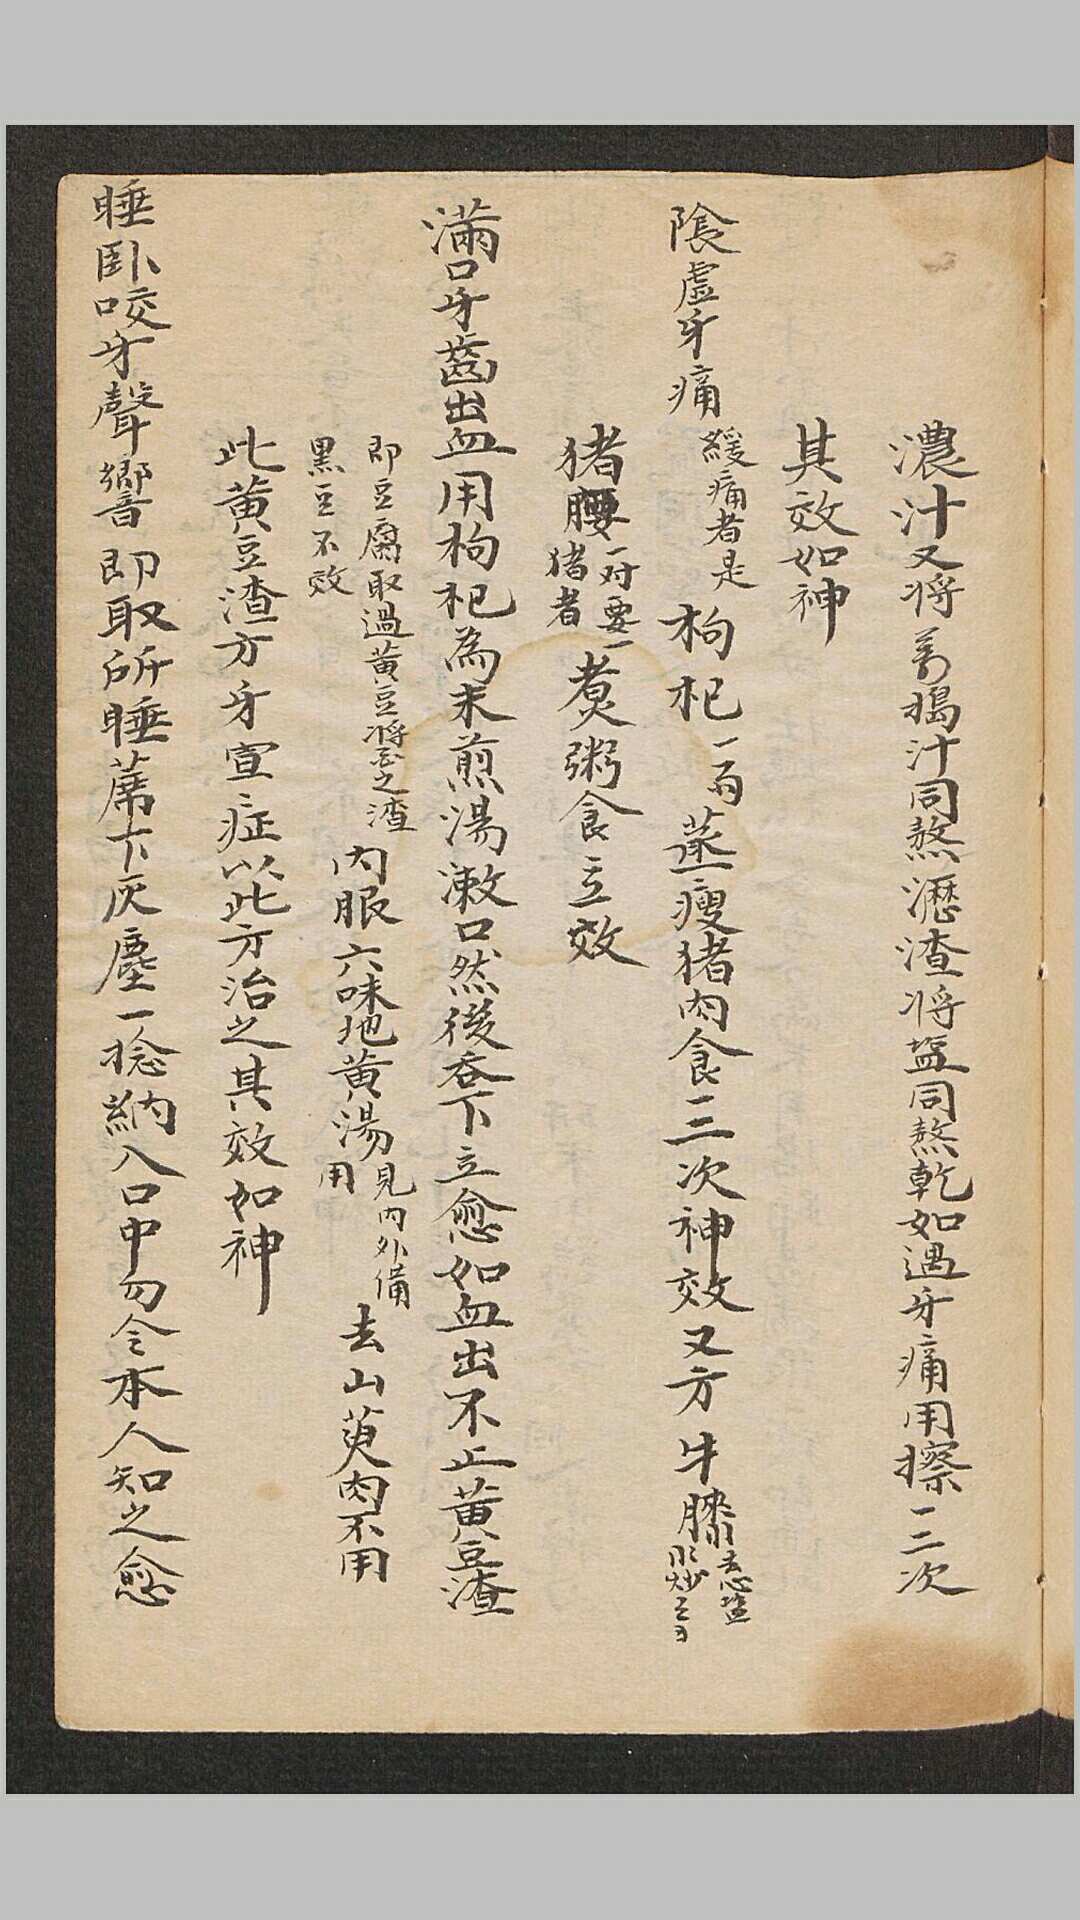 濃汁又將蒡搗汁同熬瀝渣將盐同熬乾如遇牙痛用擦一二次
其效如神
陰虛牙痛
緩痛者是
枸杞一両蒸瘦猪肉食二三次神效又方牛膝
去心盐
水炒三
猪腰
一对要一
猪者
煮粥食立效
滿口牙齒出血用枸杞為末煎湯漱口然後吞下立愈如血出不止黃豆渣
即豆腐取過黃豆將至之渣
黑豆不效
內服六味地黃湯
見内外備
用
去山萸肉不用
此黃豆渣方牙宣症以此方治之其效如神
睡卧咬牙聲響即取所睡蓆下灰塵一捻納入口中勿令本人知之愈